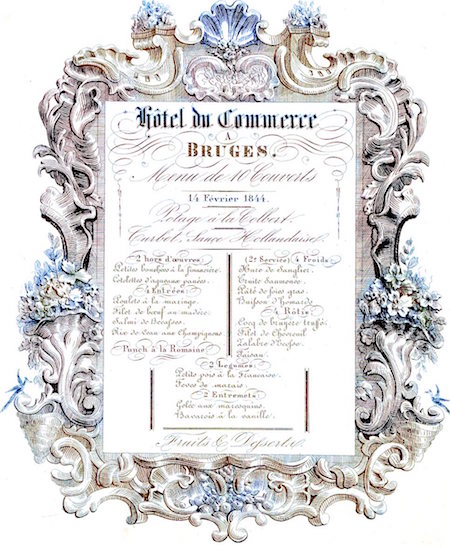 Hôtel du Commerce
A
BRUGES.
Menu de 40 Couverts
14 Février 1844.
Potage à la Colbert.
Turbot, Sauce Hollandaise.
2 hors d'œuvres
Petites bouchées à la financière.
Cotelettes d'agneaux panées.
4 Entrées
Poulets à la marengo.
Filet de bœuf au madère.
Salmi de Becasses.
Ris de Veau aux Champignons
Ponch à la Romaine
(2e Service) 4 Froids
Hure de Sanglier.
Truite Saumonée.
Pâté de foie gras.
Buisson d'Homards.
4 Rôtis
Coq de bruyère truffé.
Filet de Chevreuil
Faisan.
2 Legumes
Petits pois à la Française.
Feves de marais.
2 Entremets
Gelée aux marasquins.
Bavarois à la vanille.
Fruits & Dessert.